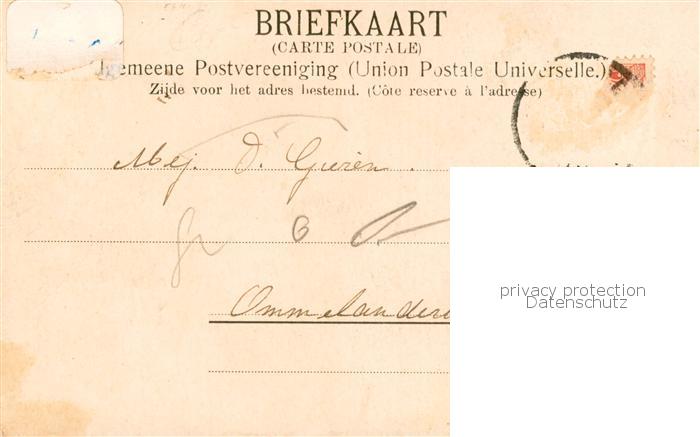 BRIEFKAART
(CARTE POSTALE)
lgemeene Postvereeniging (Union Postale Universelle.)
Zijde voor het adres bestemd. (Côte reservé à l'adresse)
Mej. D. Gieren.
6
Ommelander
privacy protection
Datenschutz